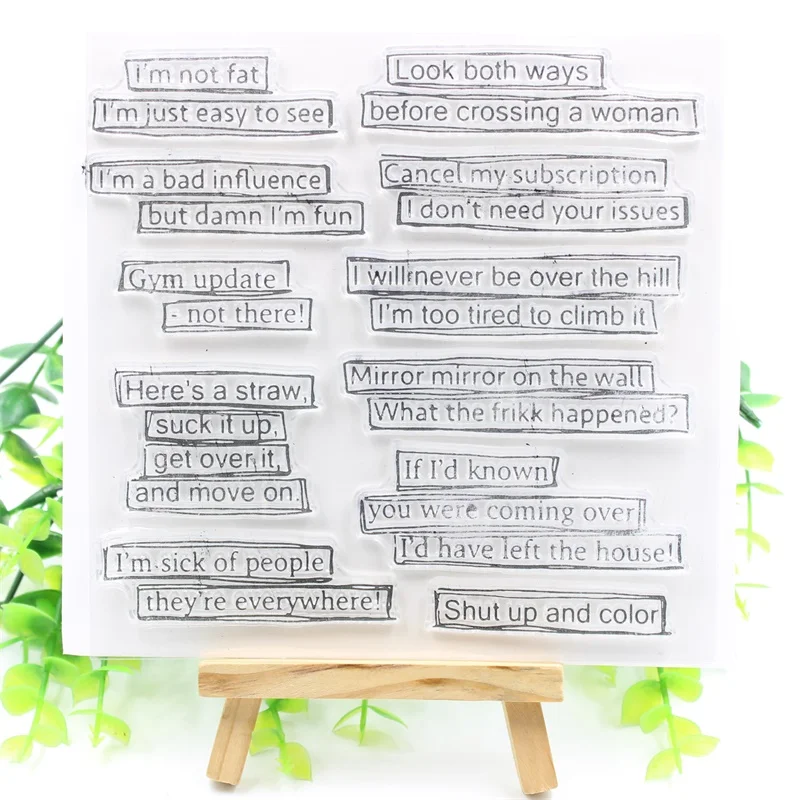 I'm not fat
I'm just easy to see
I'm a bad influence
but damn I'm fun
Gym update
- not there!
Here's a straw,
suck it up,
get over it,
and move on.
I'm sick of people
they're everywhere!
Look both ways
before crossing a woman
Cancel my subscription
I don't need your issues
I will never be over the hill
I'm too tired to climb it
Mirror mirror on the wall
What the frikk happened?
If I'd known
you were coming over
I'd have left the house!
Shut up and color